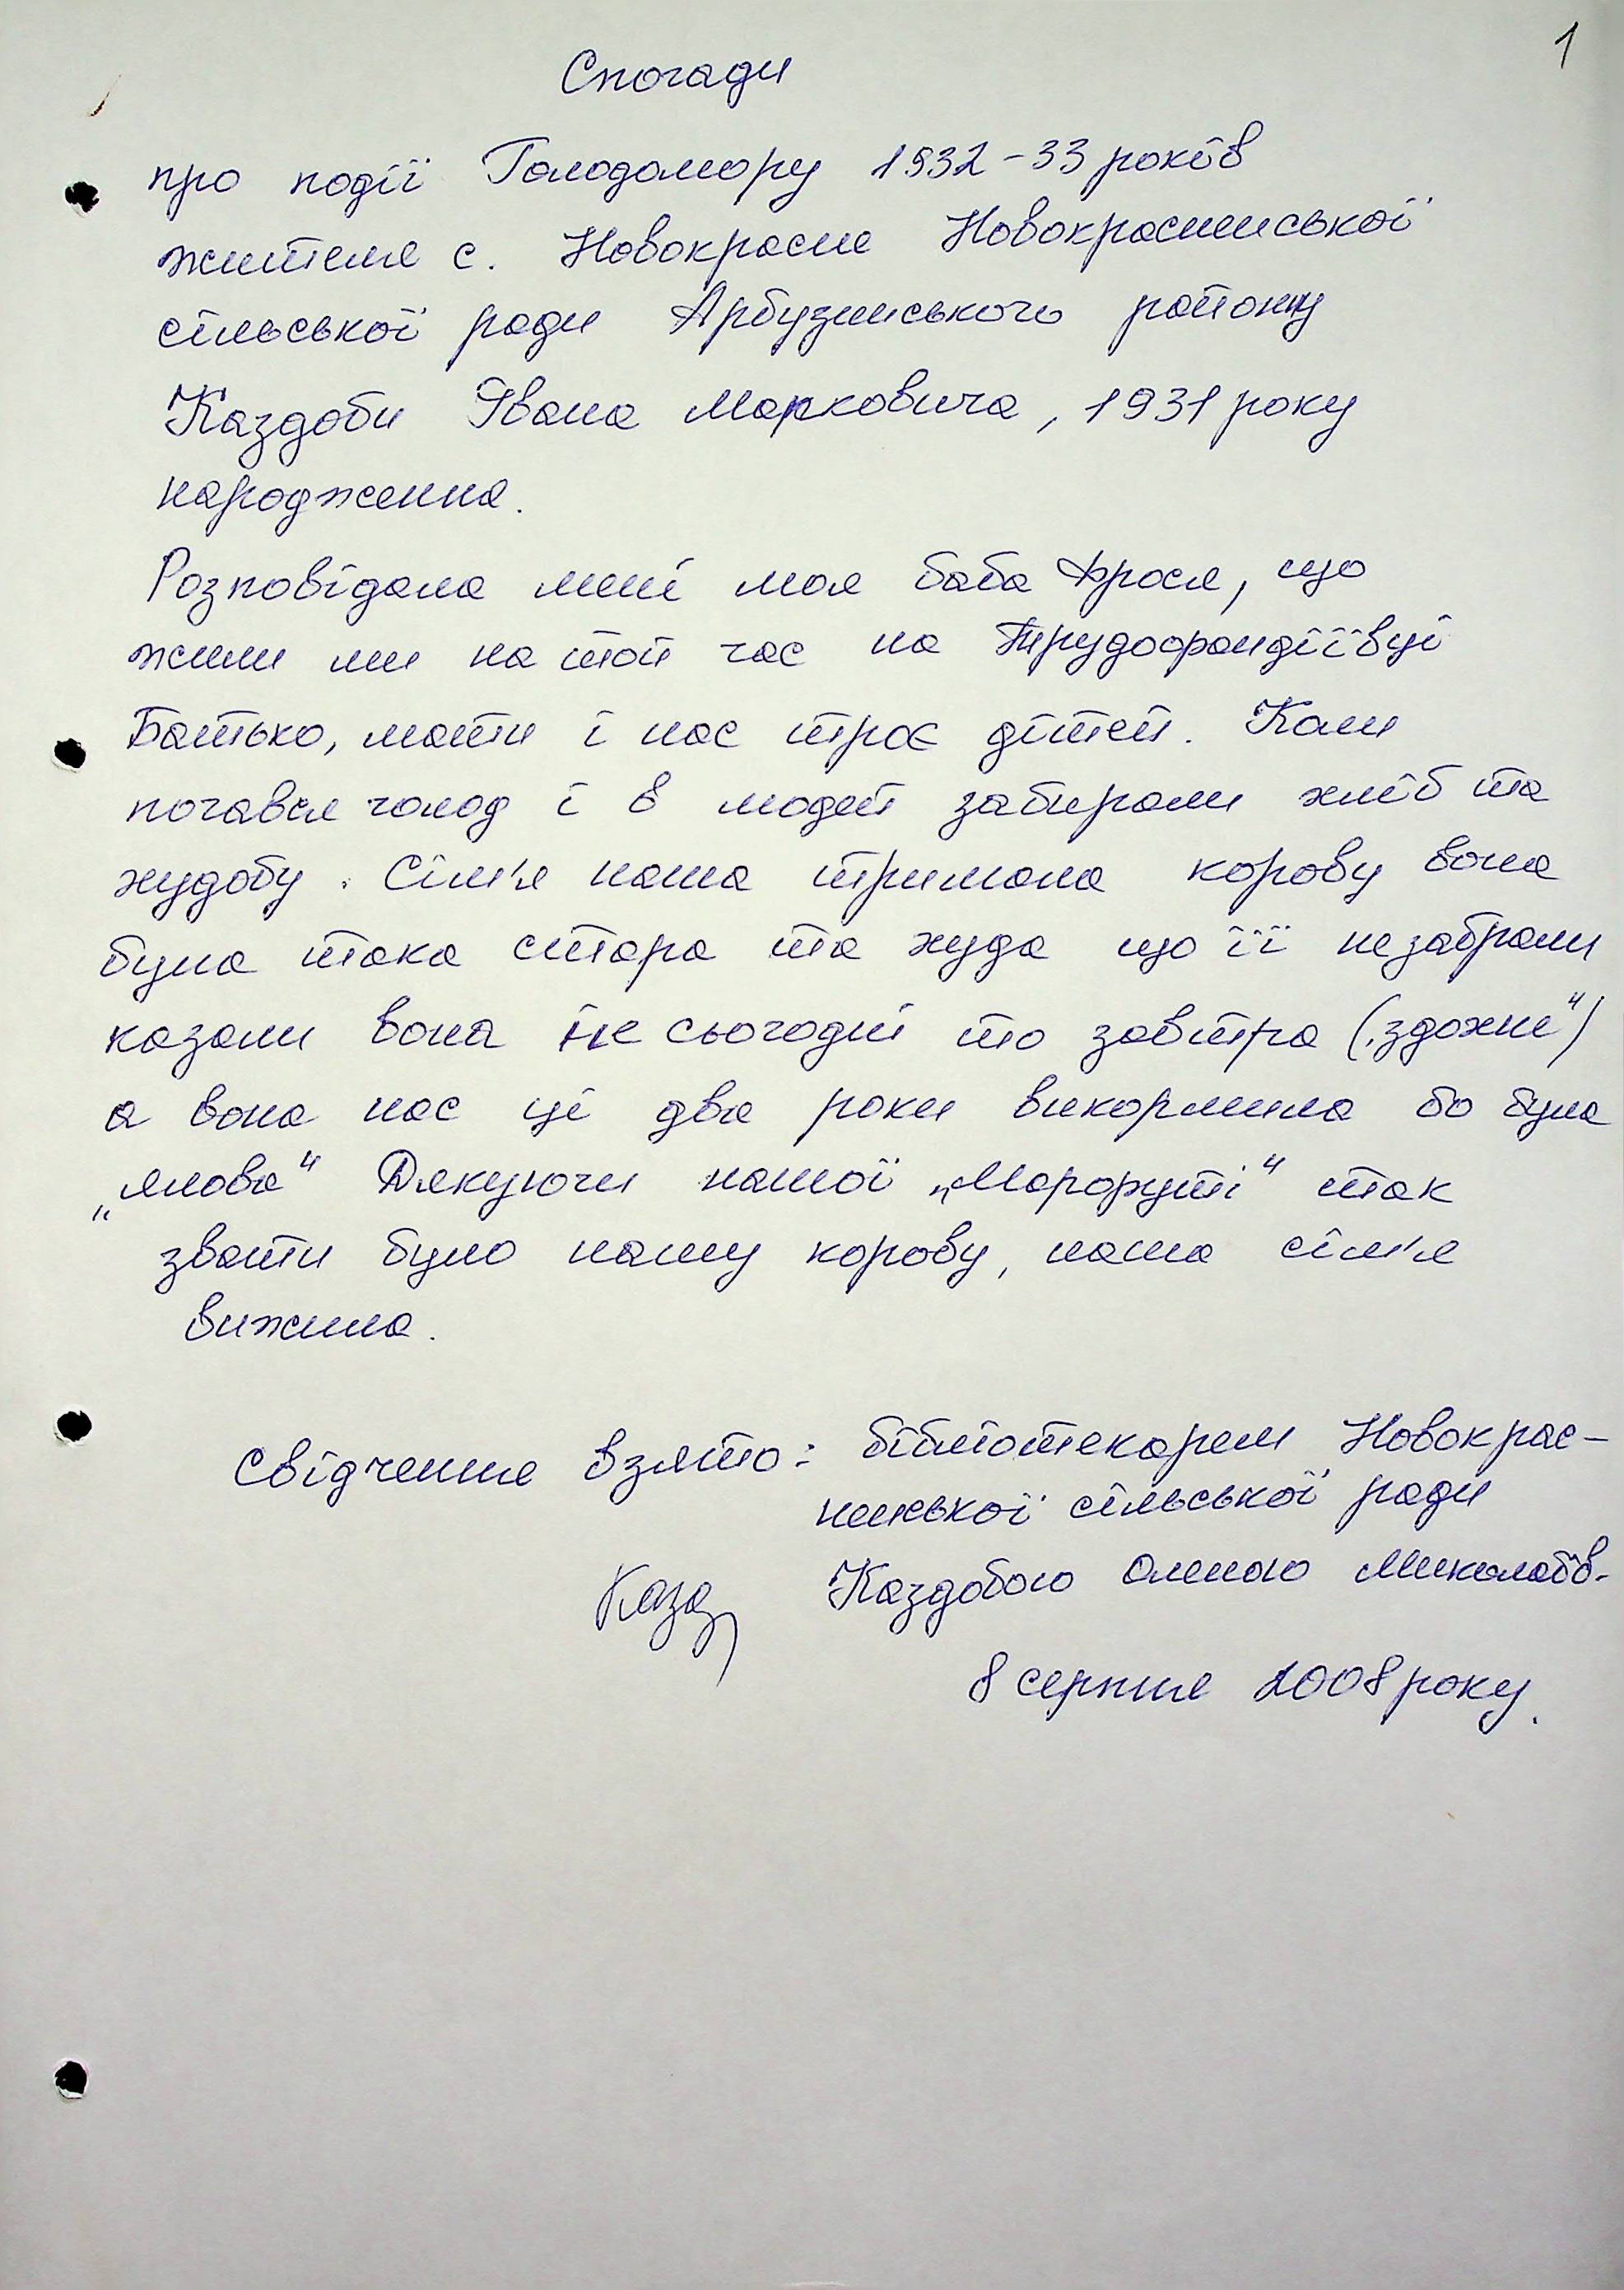 1
Спогади
про події Голодомору 1932-33 років
жителя с. Новокрасне Новокрасненської
сільської ради Арбузинського району
Каздоби Івана Марковича, 1931 року
народження.
Розповідала мені моя баба Фрося, що
жили ми на той час на Трудофандіївці
Батько, мати і нас троє дітей. Коли
почався голод і в людей забирали хліб та
худобу. Сім'я наша тримала корову вона
була така стара та худа що її незабрали
казали вона не сьогодні то завтра („здохне")
а вона нас ці два роки викормила бо була
„ялова" Дякуючи нашої „Марфуті" так
звати було нашу корову, наша сім'я
вижила.
Свідчення взято: бібліотекарем Новокрас-
ненської сільської ради
Казд Каздобою Оленою Миколаїв.
8 серпня 2008 року.